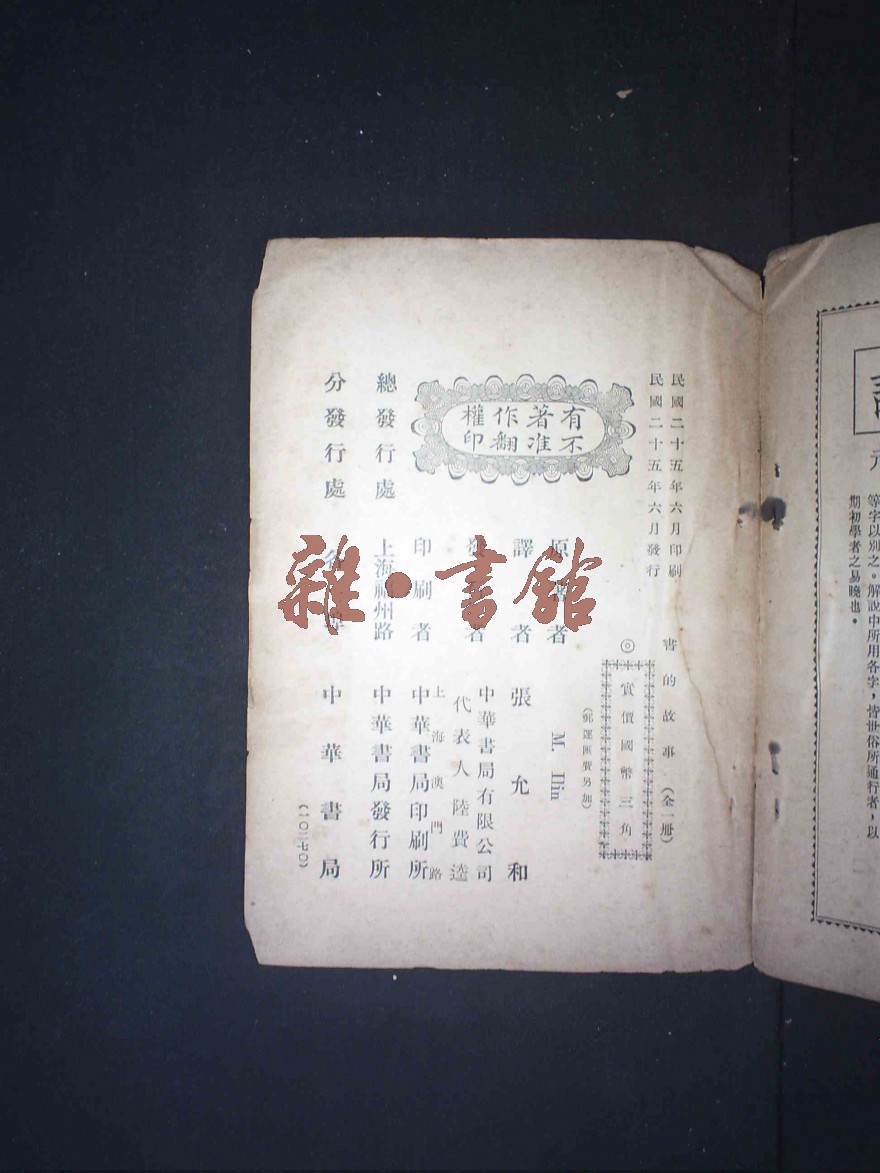 民國二十五年六月印刷
民國二十五年六月發行
書的故事（全一冊）
◎
實價國幣三角
（郵運匯費另加）
有著作權
不准翻印
原著者 M. Ilin
譯者 張允和
發者 中華書局有限公司
代表人陸費逵
上海澳門路
印刷者 中華書局印刷所
總發行處 上海福州路 中華書局發行所
分發行處 各埠 中華書局
（一〇二七〇）
雜·書館
等字以別之。解說中所用各字，皆世俗所通行者，以
期初學者之易曉也。